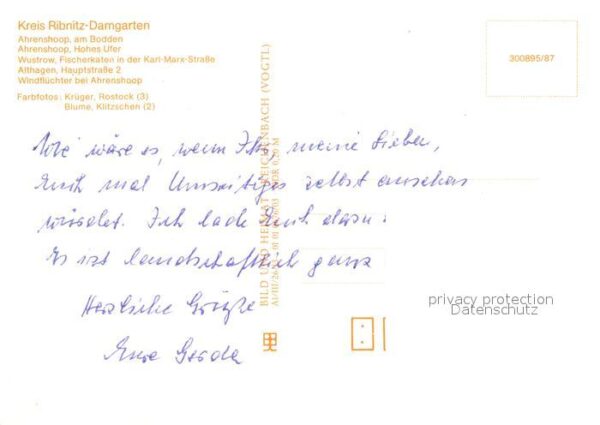 Kreis Ribnitz-Damgarten
Ahrenshoop, am Bodden
Ahrenshoop, Hohes Ufer
Wustrow, Fischerkaten in der Karl-Marx-Straße
Althagen, Hauptstraße 2
Windflüchter bei Ahrenshoop
Farbfotos: Krüger, Rostock (3)
Blume, Klitzschen (2)
300895/87
Wie wäre es, wenn Ihr, meine Lieben,
Euch mal Umseitiges selbst ansehen
würdet. Ich lade Euch dazu
Es ist landschaftlich ganz
Herzliche Grüße
Eure Gerda
BILD UND HEIMAT REICHENBACH (VOGTL)
A1/III/26/13
privacy protection
Datenschutz